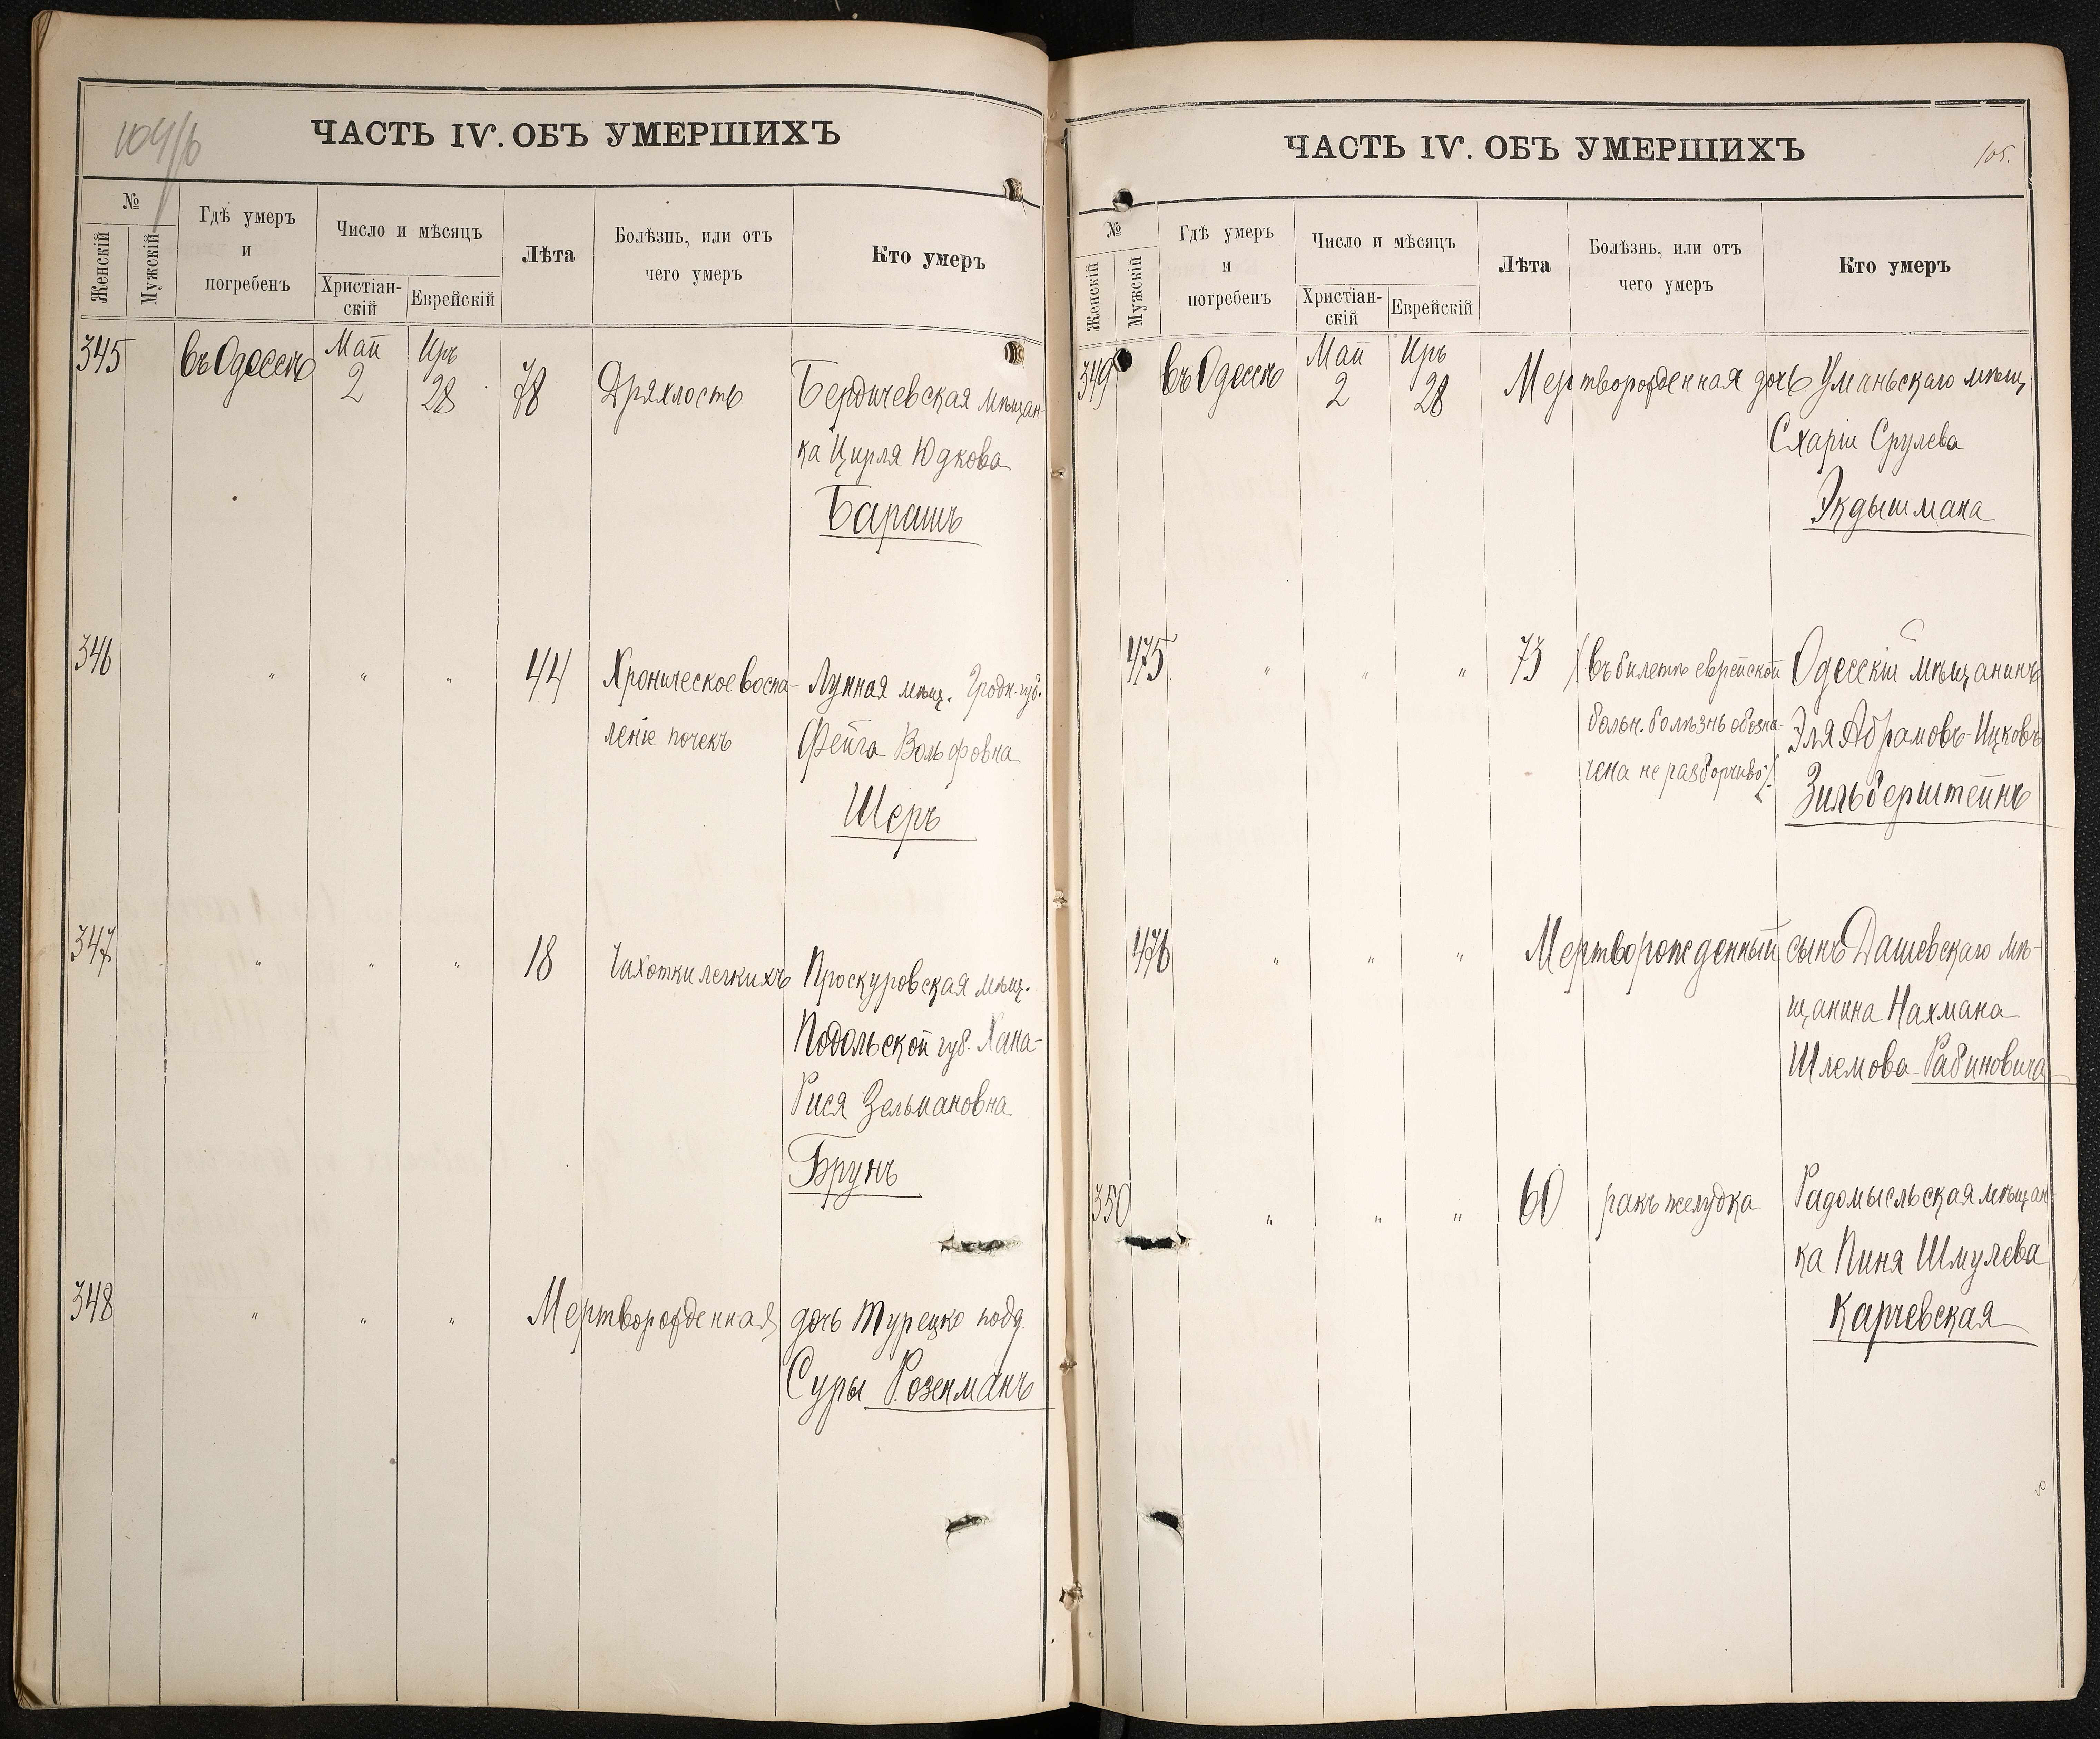 104/б
ЧАСТЬ IV. ОБЪ УМЕРШИХЪ
№
Женскій
Мужскій
Гдѣ умеръ
и
погребенъ
Число и мѣсяцъ
Христіан-
скій
Еврейскій
Лѣта
Болѣзнь, или отъ
чего умеръ
Кто умеръ
345 въ Одессѣ Май 2 Иръ 28 78 Дряхлость Бердичевская мѣщан-
ка Цирля Юдкова
Барашъ
346 " " " 44 Хроническое воспа- Лунная мѣщ. Гродн. губ.
леніе почекъ Фейга Вольфовна
Шеръ
347 " " " 18 Чахотки легкихъ Проскуровская мѣщ.
Подольской губ. Хана-
Рися Зельмановна
Брунъ
348 " " " Мертворожденная дочь Турецко подд.
Суры Розенманъ
ЧАСТЬ IV. ОБЪ УМЕРШИХЪ
105.
№
Женскій
Мужскій
Гдѣ умеръ
и
погребенъ
Число и мѣсяцъ
Христіан-
скій
Еврейскій
Лѣта
Болѣзнь, или отъ
чего умеръ
Кто умеръ
349 въ Одессѣ Май 2 Иръ 28 Мертворожденная дочь Уманьскаго мѣщ.
Схаріи Срулева
Экдышмана
475 " " " 73 /въ билетѣ еврейской Одесскій мѣщанинъ
больн. болѣзнь обозна- Эля Абрамовъ-Ицковъ
чена не разборчиво/. Зильберштейнъ
476 " " " Мертворожденный сынъ Дашевскаго мѣ-
щанина Нахмана
Шлемова Рабиновича
350 " " " 60 ракъ желудка Радомысльская мѣщан-
ка Пиня Шмулева
Карчевская